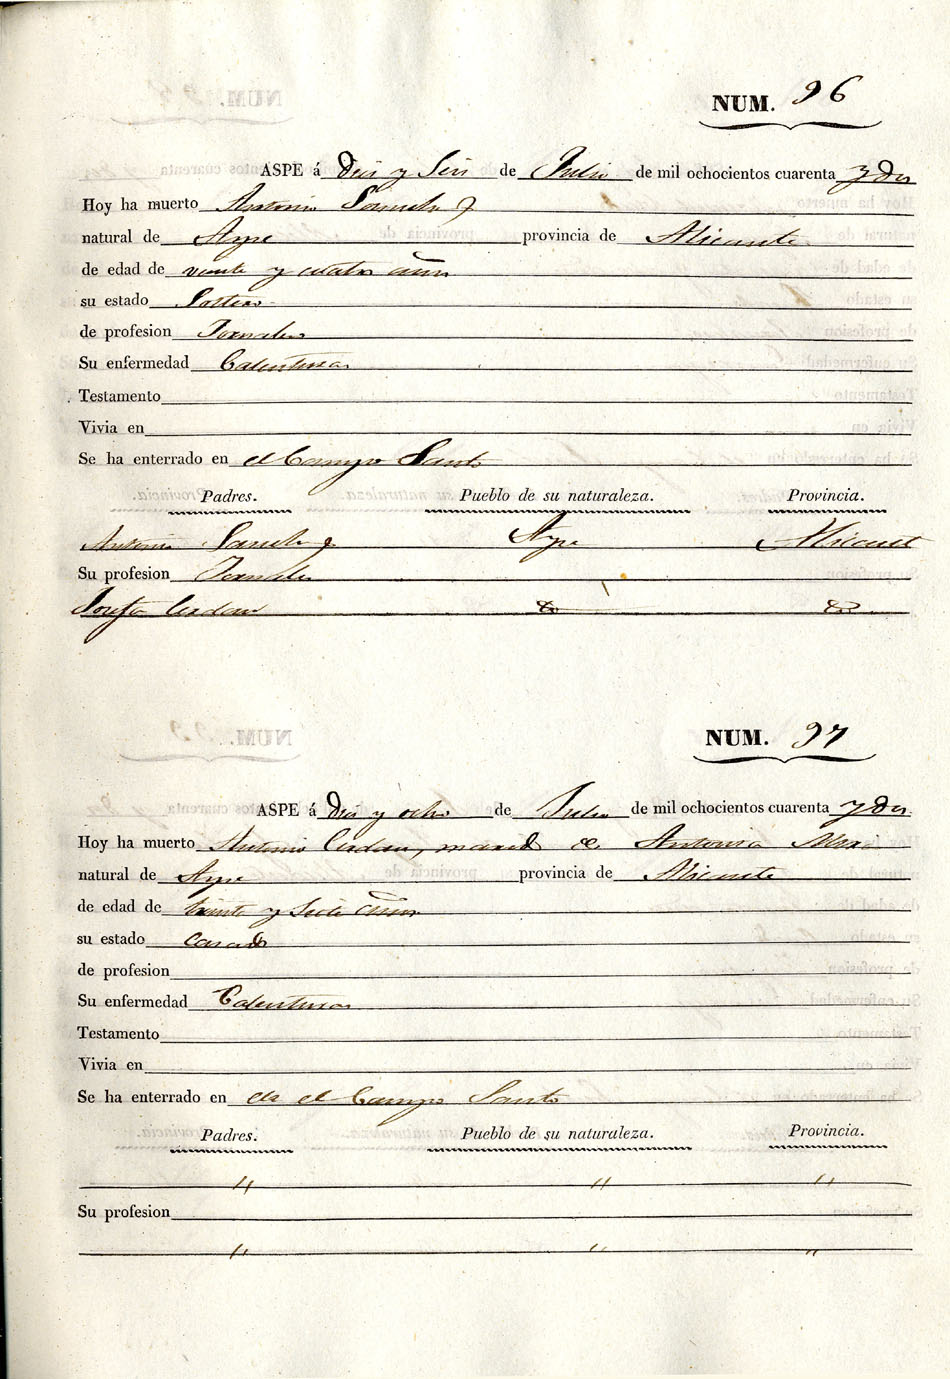 NUM. 96
ASPE á Dies y Seis de Julio de mil ochocientos cuarenta y dos
Hoy ha muerto Antonio
natural de Aspe provincia de Alicante
de edad de veinte y cuatro años
su estado Soltero
de profesion Jornalero
Su enfermedad Calenturas
Testamento
Vivia en
Se ha enterrado en el Campo Santo
Padres. Pueblo de su naturaleza. Provincia.
Antonio Aspe Alicante
Su profesion Jornalero
Josefa Cerdan
NUM. 97
ASPE á Dies y ocho de Julio de mil ochocientos cuarenta y dos
Hoy ha muerto Antonio Cerdan, marido de Antonia
natural de Aspe provincia de Alicante
de edad de treinta y Siete años
su estado Casado
de profesion
Su enfermedad Calenturas
Testamento
Vivia en
Se ha enterrado en el Campo Santo
Padres. Pueblo de su naturaleza. Provincia.
" " "
Su profesion
" " "